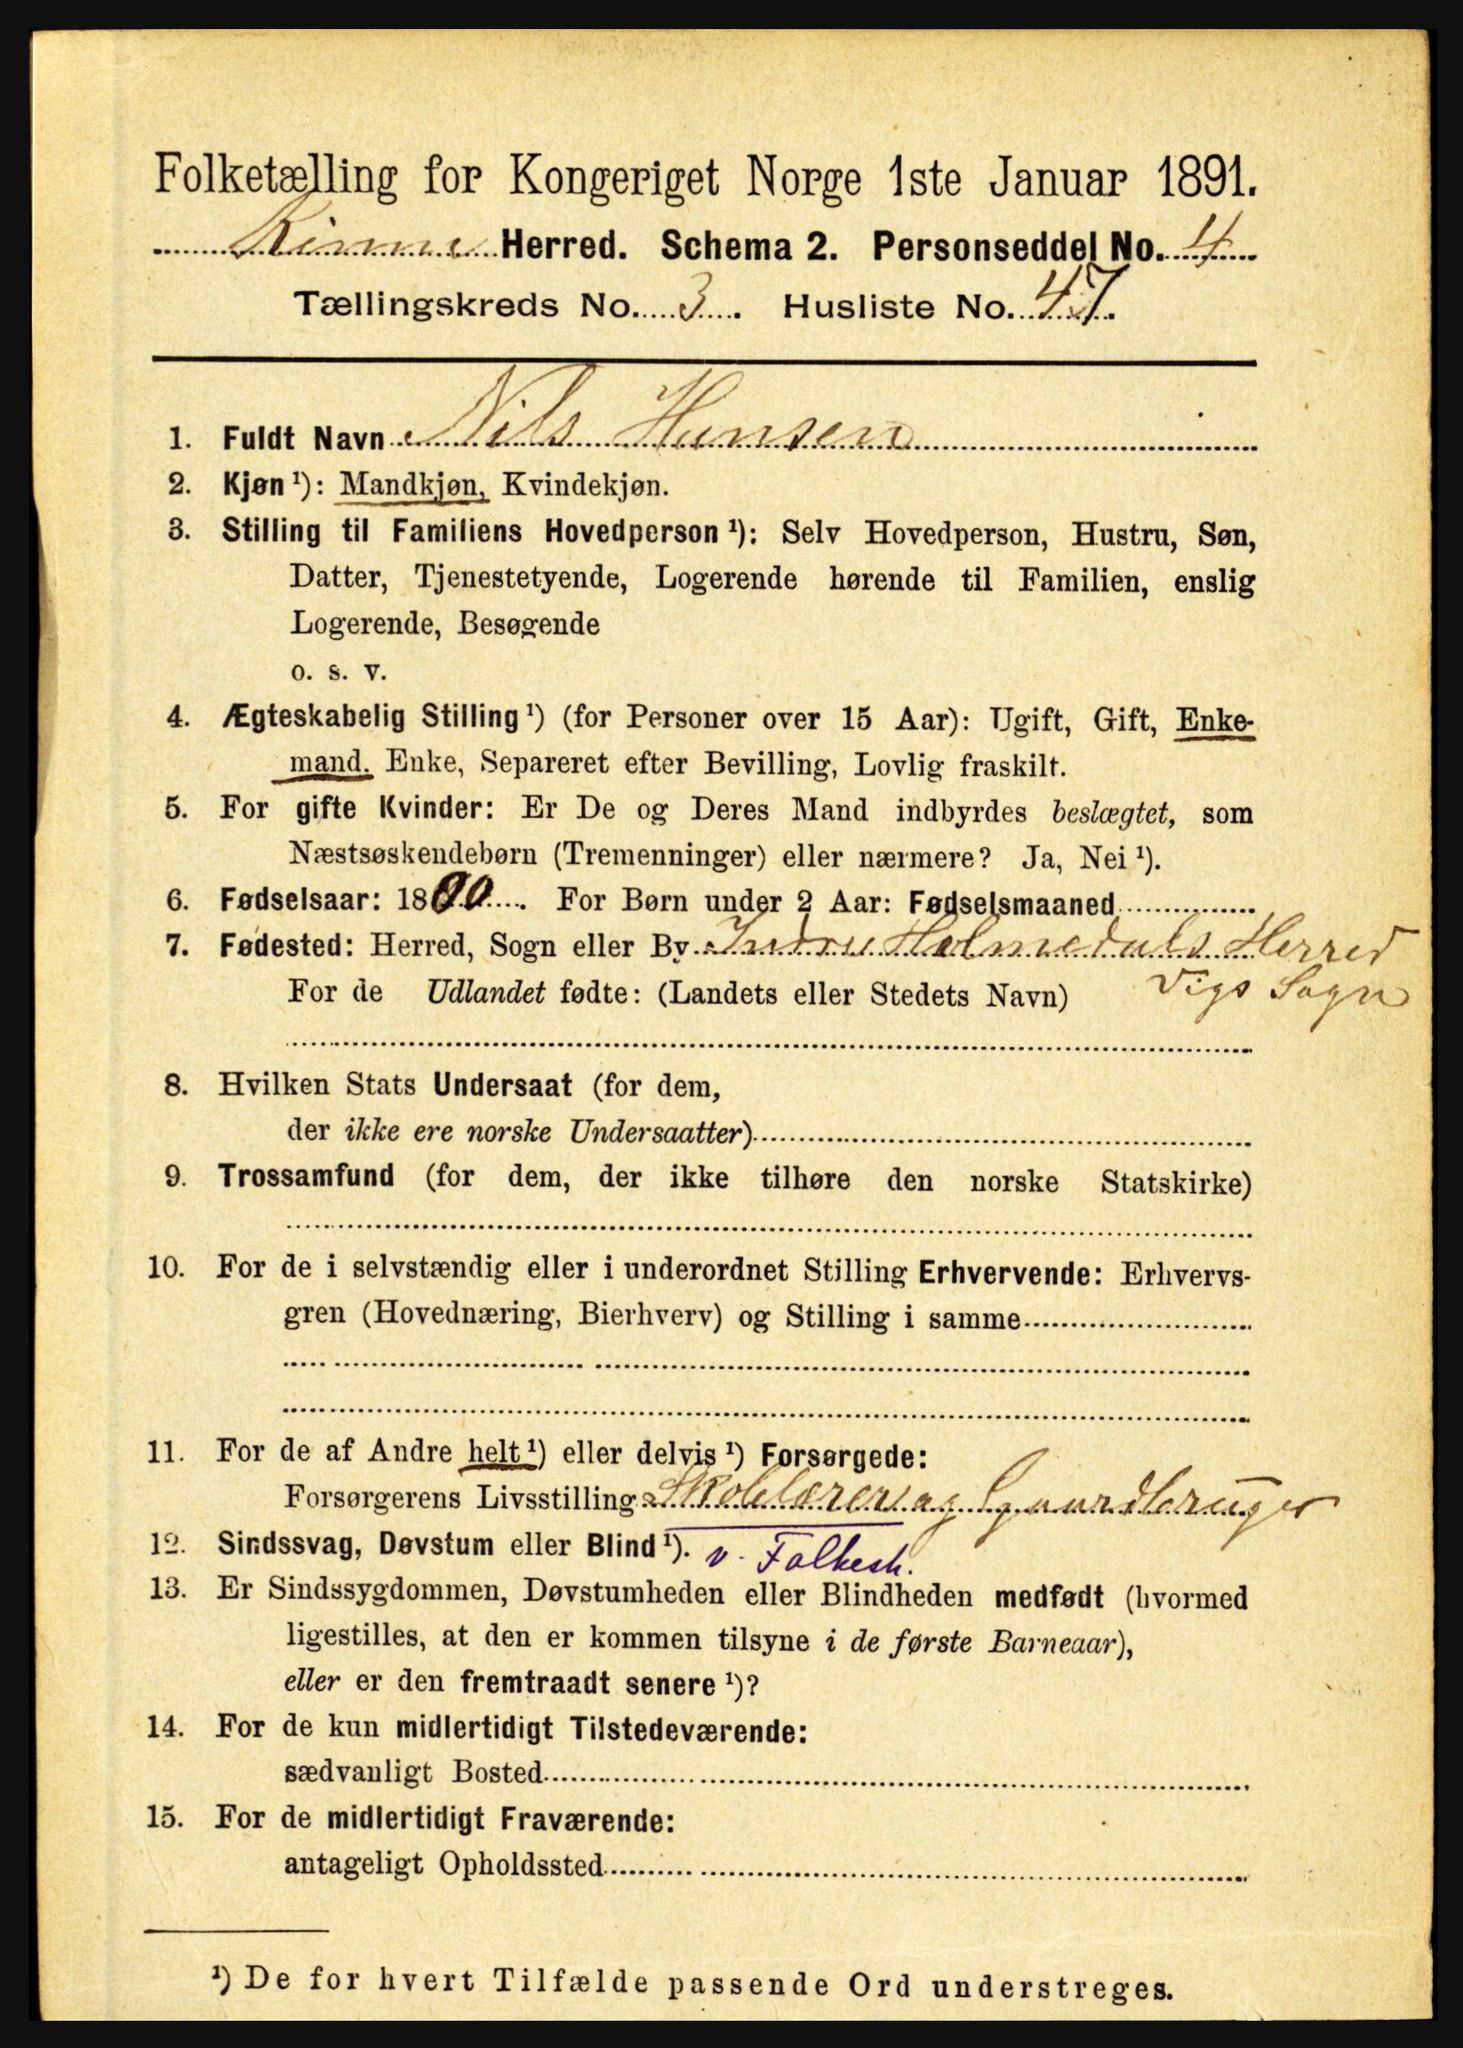 Folketælling for Kongeriget Norge 1ste Januar 1891.
Kinn Herred. Schema 2. Personseddel No. 4
Tællingskreds No. 3. Husliste No. 47.
1. Fuldt Navn Nils Hansen
2. Kjøn ¹): Mandkjøn, Kvindekjøn.
3. Stilling til Familiens Hovedperson ¹): Selv Hovedperson, Hustru, Søn,
Datter, Tjenestetyende, Logerende hørende til Familien, enslig
Logerende, Besøgende
o. s. v.
4. Ægteskabelig Stilling ¹) (for Personer over 15 Aar): Ugift, Gift, Enke-
mand. Enke, Separeret efter Bevilling, Lovlig fraskilt.
5. For gifte Kvinder: Er De og Deres Mand indbyrdes beslægtet, som
Næstsøskendebørn (Tremenninger) eller nærmere? Ja, Nei ¹).
6. Fødselsaar: 1800. For Børn under 2 Aar: Fødselsmaaned
7. Fødested: Herred, Sogn eller By Indre Holmedals Herred
For de Udlandet fødte: (Landets eller Stedets Navn) Vigs Sogn
8. Hvilken Stats Undersaat (for dem,
der ikke ere norske Undersaatter)
9. Trossamfund (for dem, der ikke tilhøre den norske Statskirke)
10. For de i selvstændig eller i underordnet Stilling Erhvervende: Erhvervs-
gren (Hovednæring, Bierhverv) og Stilling i samme
11. For de af Andre helt ¹) eller delvis ¹) Forsørgede:
Forsørgerens Livsstilling Skolelærer og Gaardbruger
12. Sindssvag, Døvstum eller Blind ¹). v. Folkesk.
13. Er Sindssygdommen, Døvstumheden eller Blindheden medfødt (hvormed
ligestilles, at den er kommen tilsyne i de første Barneaar),
eller er den fremtraadt senere ¹)?
14. For de kun midlertidigt Tilstedeværende:
sædvanligt Bosted
15. For de midlertidigt Fraværende:
antageligt Opholdssted
¹) De for hvert Tilfælde passende Ord understreges.